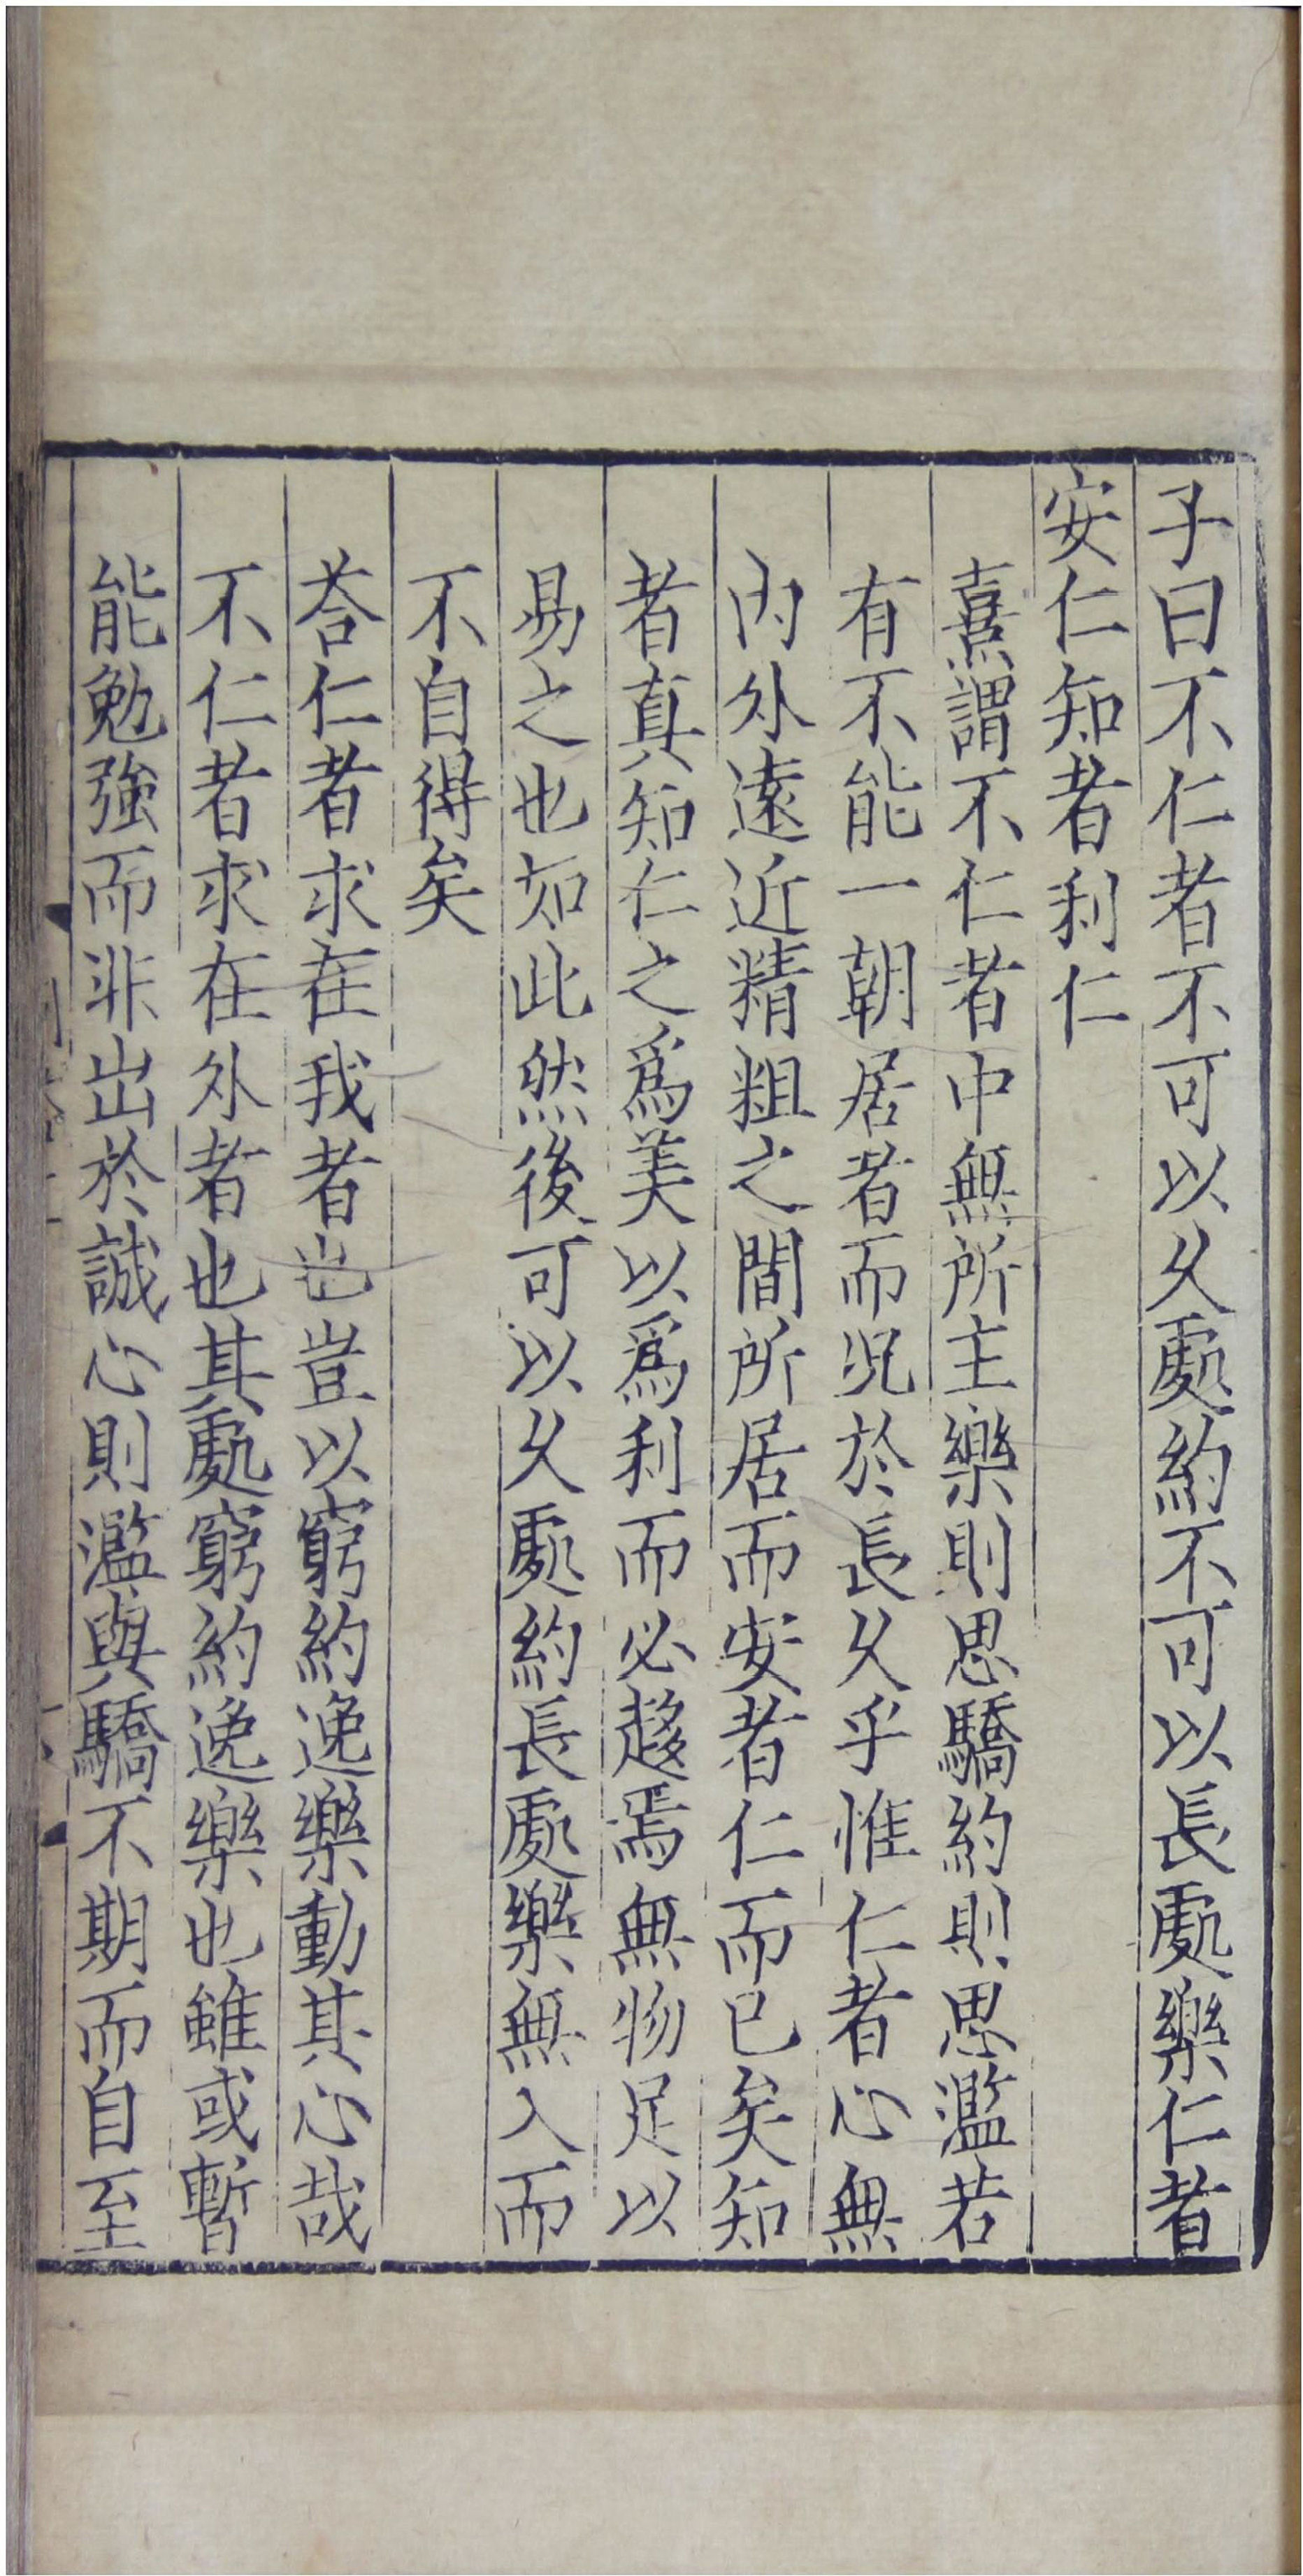 子曰不仁者不可以乆處約不可以長處樂仁者
安仁知者利仁
熹謂不仁者中無所主樂則思驕約則思濫若
有不能一朝居者而况於長乆乎惟仁者心無
内外逺近精粗之間所居而安者仁而已矣知
者真知仁之爲美以爲利而必趍焉無物足以
易之也如此然後可以乆處約長處樂無入而
不自得矣
荅仁者求在我者也豈以窮約逸樂動其心哉
不仁者求在外者也其處窮約逸樂也雖或暫
能勉強而非出於誠心則濫與驕不期而自至